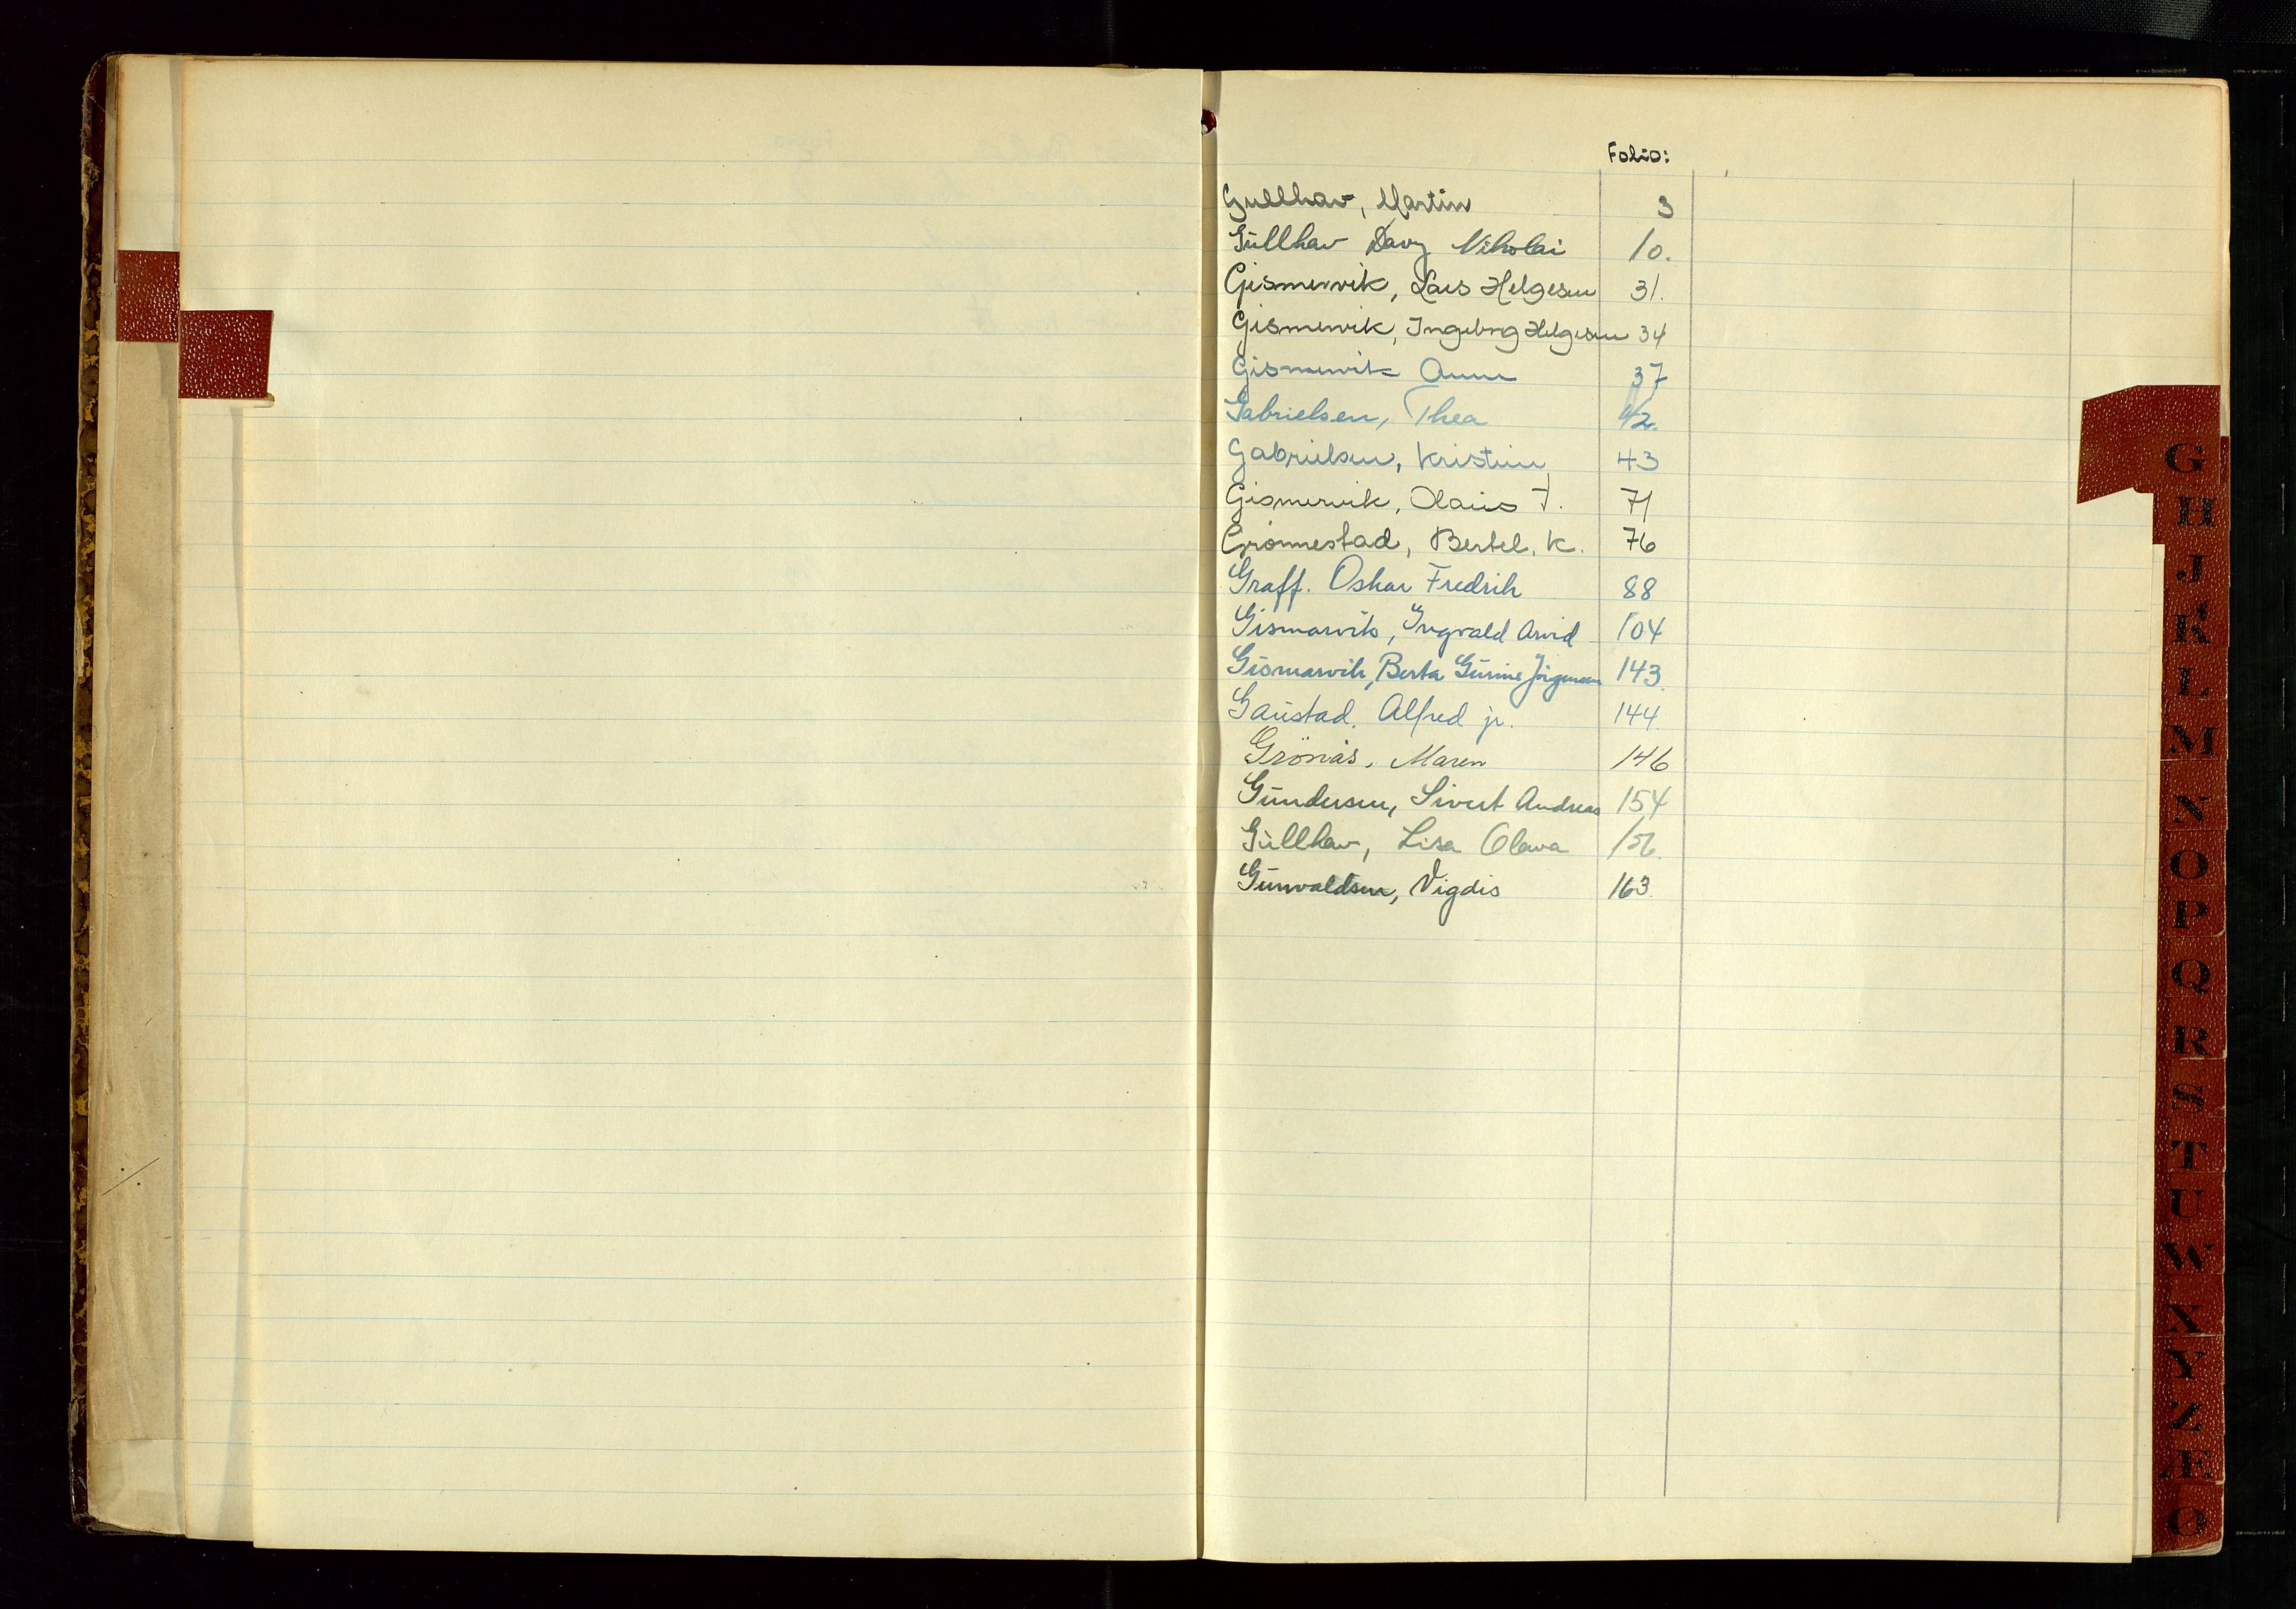 Folio:
Gullhav, Martin 3
Gullhav Davy Nikolai 10.
Gismervik, Lars Helgesen 31.
Gismervik, Ingeborg Helgesen 34
Gismervik Anne 37
Gabrielsen, Thea 42.
Gabrielsen, Kristine 43
Gismervik, Olaus T. 71
Grønnestad, Bertel. K. 76
Graff. Oskar Fredrik 88
Gismarvik, Ingvald Arvid 104
Gismarvik, Berta Gurine Jørgensen 143.
Gaustad. Alfred jr. 144.
Grönås, Maren 146
Gundersen, Sivert Andreas 154
Gullhav, Lisa Olava 156.
Gunvaldsen, Vigdis 163.
G
H
J
K
L
M
N
O
P
Q
R
S
T
U
W
X
Y
Z
Æ
Ø